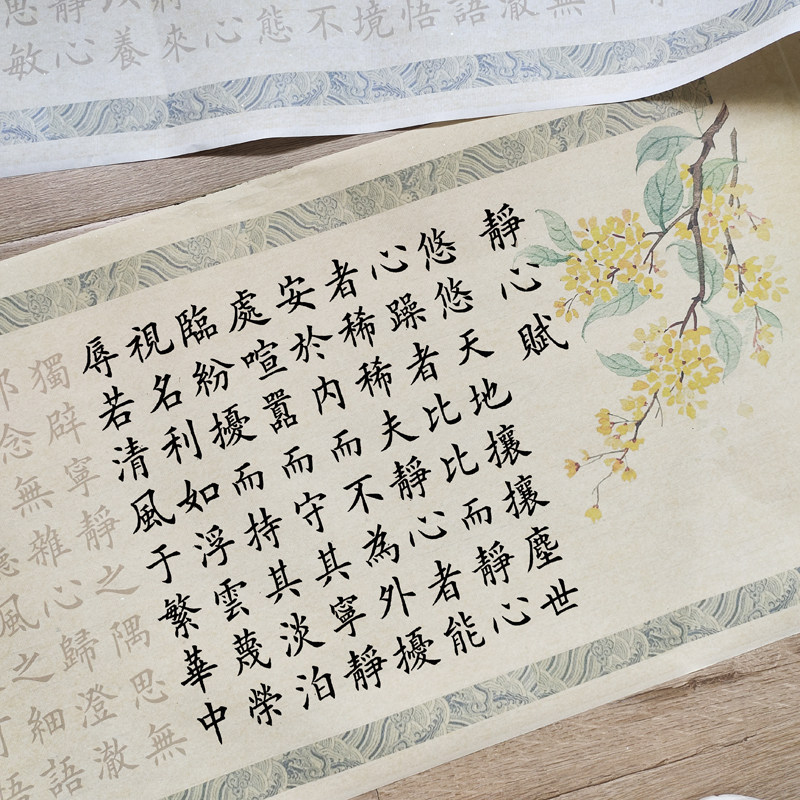 靜心賦
悠悠天地攘攘塵世
心躁者比比而靜心
者稀稀夫靜心者能
安於內而不為外擾
處喧囂而守其寧靜
臨紛擾而持其淡泊
視名利如浮雲蔑榮
辱若清風于繁華中
獨辟寧靜之隅思無
邪念無雜心歸澄澈
風之細語
悟
無
澈
語
悟
境
不
態
心
來
養
靜心
思敏